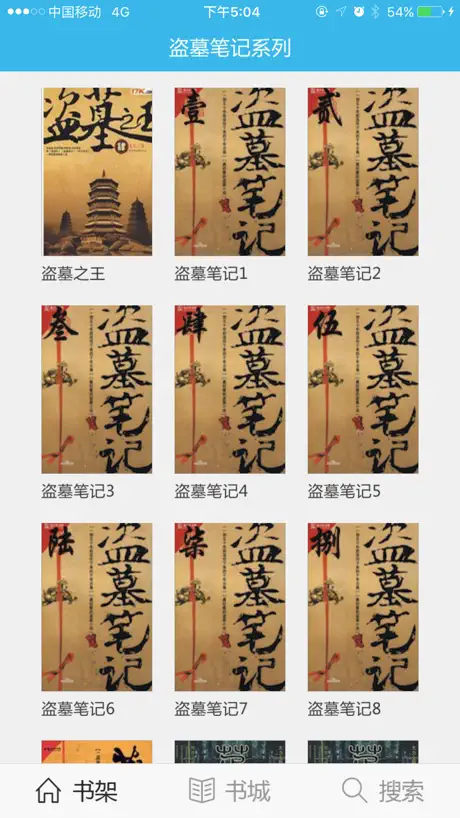 中国移动 4G 下午5:04 54%
盗墓笔记系列
盗墓之王
肆
盗墓之王
壹
盗墓笔记
盗墓笔记1
贰
盗墓笔记
盗墓笔记2
叁
盗墓笔记
盗墓笔记3
肆
盗墓笔记
盗墓笔记4
伍
盗墓笔记
盗墓笔记5
陆
盗墓笔记
盗墓笔记6
柒
盗墓笔记
盗墓笔记7
捌
盗墓笔记
盗墓笔记8
书架
书城
搜索